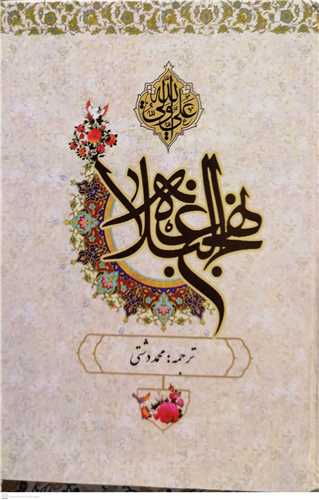 علی ولی الله
نهج البلاغه
ترجمه: محمد دشتی